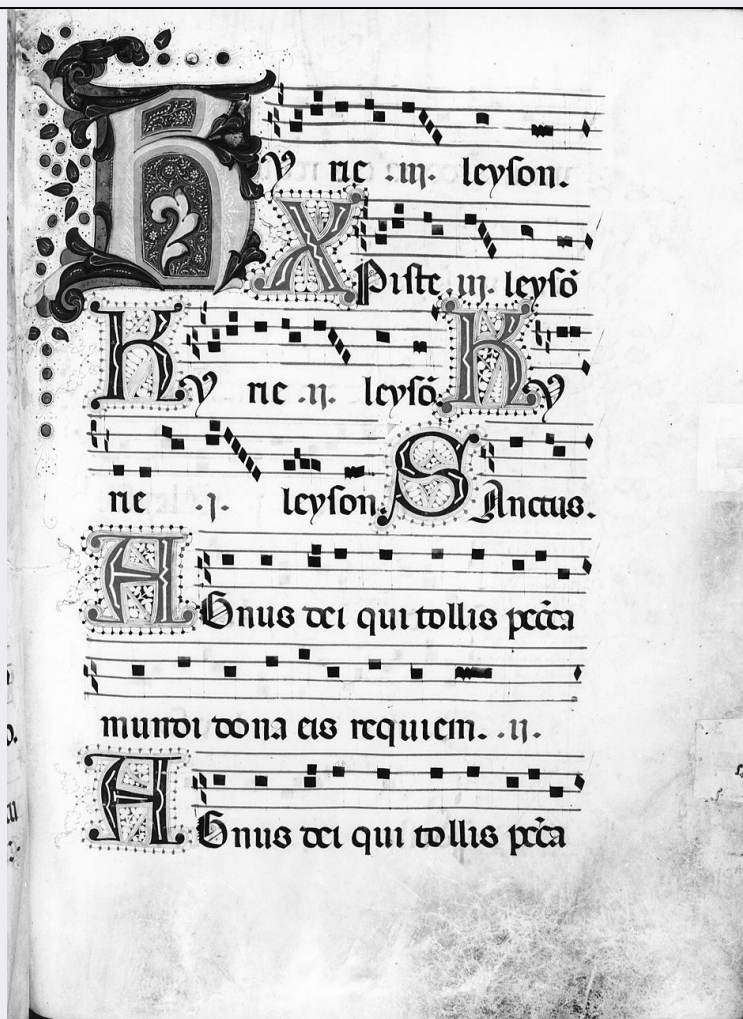 Ky rie .iij. leyson.
Xpiste .iij. leysō
Ky rie .ij. leysō. Ky
rie .j. leyson. Sanctus.
Agnus dei qui tollis pccā
mundi dona eis requiem. .ij.
Agnus dei qui tollis pccā